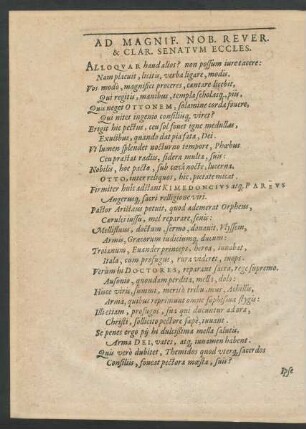 AD MAGNIF. NOB. REVER.
& CLAR. SENATVM ECCLES.
ALLOQVAR haud alios? non possum jure tacere:
Nam placuit, lenta, verba ligare, modis.
Vos modò, magnifici proceres, cantare licebit,
Qui regitis, manibus, templa scholasq;, pijs,
Quis neget OTTONEM, solamine corda fovere,
Qui nitet ingenio consiliisq;, viret?
Erigit hoc pectus, ceu sol fovet igne medullas,
Exutibus, quando dat pia fata, Dei.
Vt lumen splendet nocturno tempore, Phœbus
Ceu præstat radiis, sidera multa, suis:
Nobilis, hoc pacto, sub cœcâ nocte, lucerna
OTTO, inter reliquos, hic, pietate nitet.
Firmiter huic adstant KIMEDONCIVS atq; PAREVS
Angerusq;, sacri relligione viri.
Pastor Aristæus petait, quod ademerat Orpheus,
Cæruleis jussu, mel reparare, senis:
Mellifluus, doctum, sermo, donavit, Vlyssem,
Armis, Græcorum nobiliumq;, ducum:
Troianum, Euander princeps, heros, juvabat,
Italia, cum profugus, rura videret, inops.
Verùm hi DOCTORES, reparant sacra, rege supremo,
Ausonio, quondam perdita, melle, dolo:
Hisce viris, summis, meritò tribuimus, Achillis,
Arma, quibus reprimunt omne sophisma stygis:
Illi etiam, profugos, sua qui ducuntur ad ora,
Christi, sollicito pectore sæpè, juvant.
Se penes ergo pij hi dulcissima mella salutis,
Arma DEI, vates, atq; juvamen habent.
Quis verò dubitet, Themidos quod uterq;, sacerdos
Consiliis, foveat pectora mæsta, suis?
Ipse